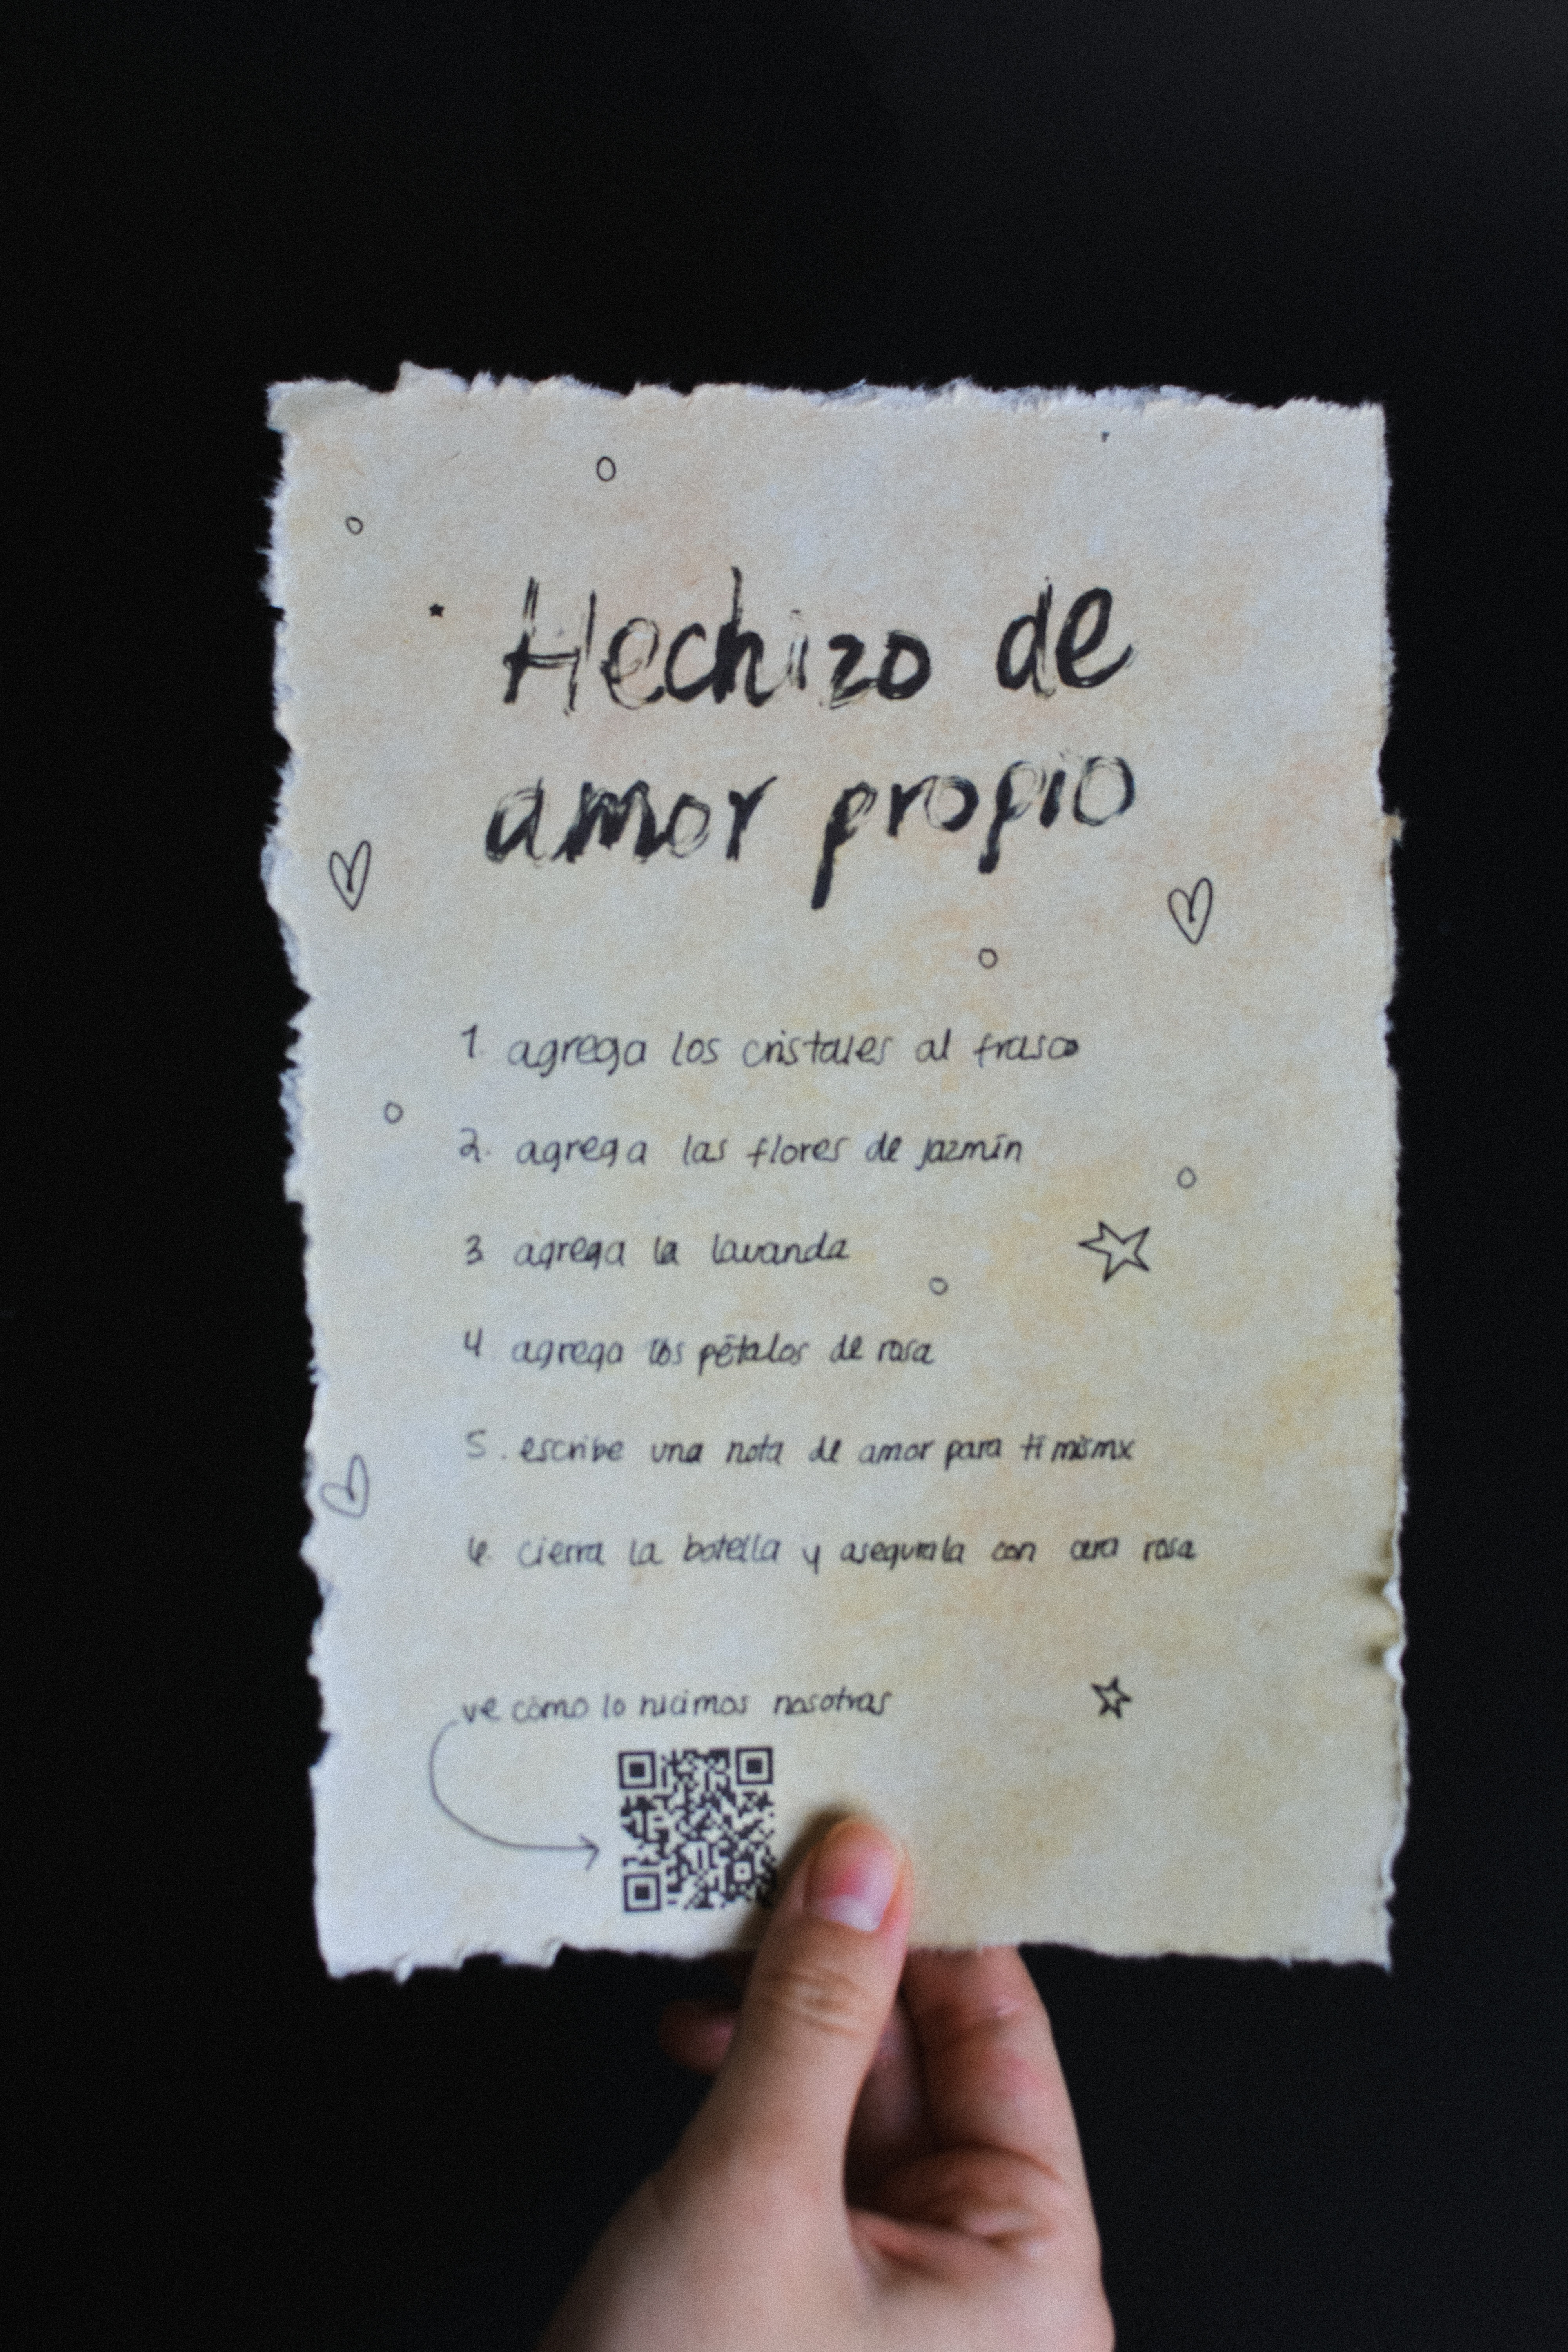 Hechizo de
amor propio
1. agrega los cristales al frasco
2. agrega las flores de jazmín
3 agrega la lavanda
4 agrega los pétalos de rosa
5. escribe una nota de amor para ti mismx
6. cierra la botella y asegurala con cera rosa
ve cómo lo hicimos nosotras